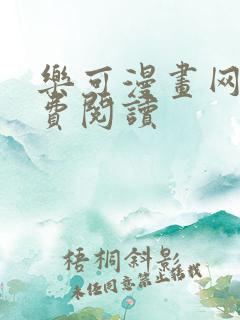 樂可漫畫网
費閱讀
梧桐斜影
未经同意禁止转载